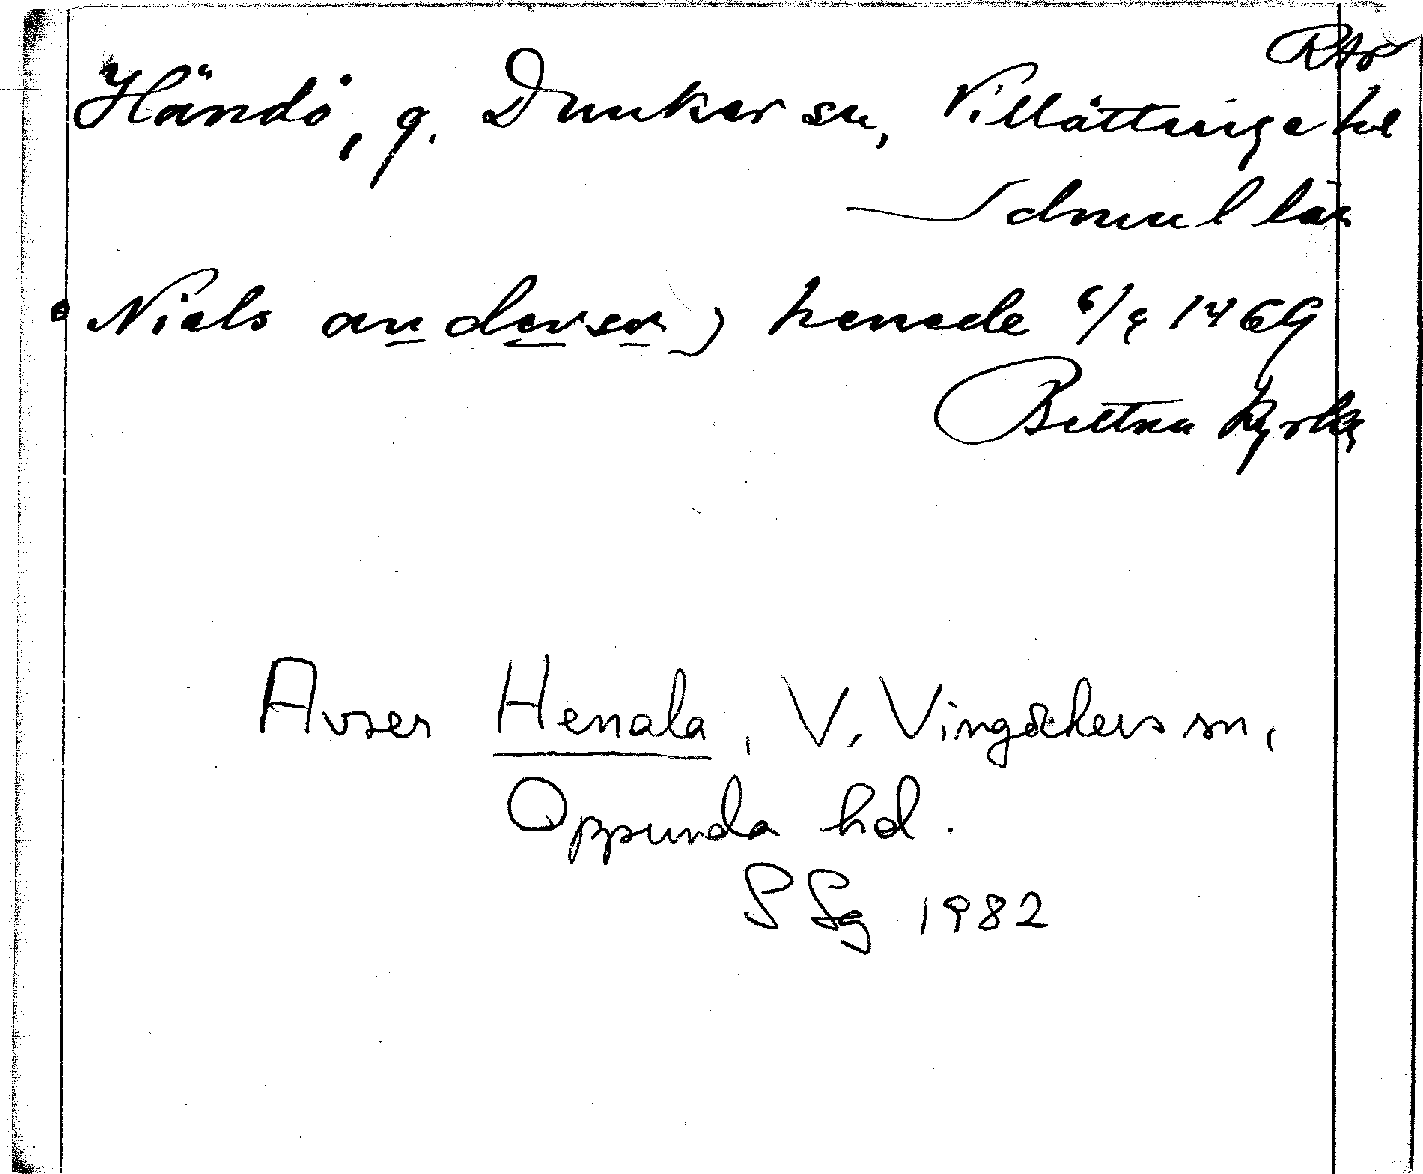 RAp
Händö, g. Dunker sn, Villåttinge hd
Södmnl län
Niels anderson) henede 6/9 1469
Bettna kyrka
Avser Henala, V. Vingåkers sn,
Oppunda hd.
SSg 1982